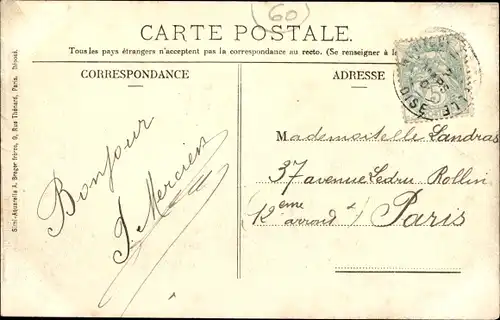 (60)
CARTE POSTALE.
Tous les pays étrangers n'acceptent pas la correspondance au recto. (Se renseigner à la
CORRESPONDANCE
ADRESSE
5
OISE
Simi-Aquarelle A. Breger frères, 9, Rue Thénard, Paris. Déposé.
Bonjour
J. Mercier
Mademoiselle Landras
37 avenue Ledru Rollin
(12eme arrond t)
Paris